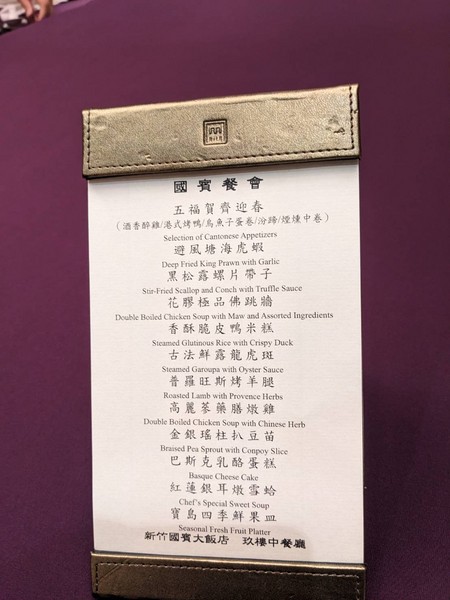 國賓餐會
五福賀齊迎春
（酒香醉雞/港式烤鴨/烏魚子蛋卷/汾蹄/煙燻中卷）
Selection of Cantonese Appetizers
避風塘海虎蝦
Deep Fried King Prawn with Garlic
黑松露螺片帶子
Stir-Fried Scallop and Conch with Truffle Sauce
花膠極品佛跳牆
Double Boiled Chicken Soup with Maw and Assorted Ingredients
香酥脆皮鴨米糕
Steamed Glutinous Rice with Crispy Duck
古法鮮露龍虎斑
Steamed Garoupa with Oyster Sauce
普羅旺斯烤羊腿
Roasted Lamb with Provence Herbs
高麗蔘藥膳燉雞
Double Boiled Chicken Soup with Chinese Herb
金銀瑤柱扒豆苗
Braised Pea Sprout with Conpoy Slice
巴斯克乳酪蛋糕
Basque Cheese Cake
紅蓮銀耳燉雪蛤
Chef's Special Sweet Soup
寶島四季鮮果皿
Seasonal Fresh Fruit Platter
新竹國賓大飯店 玖樓中餐廳